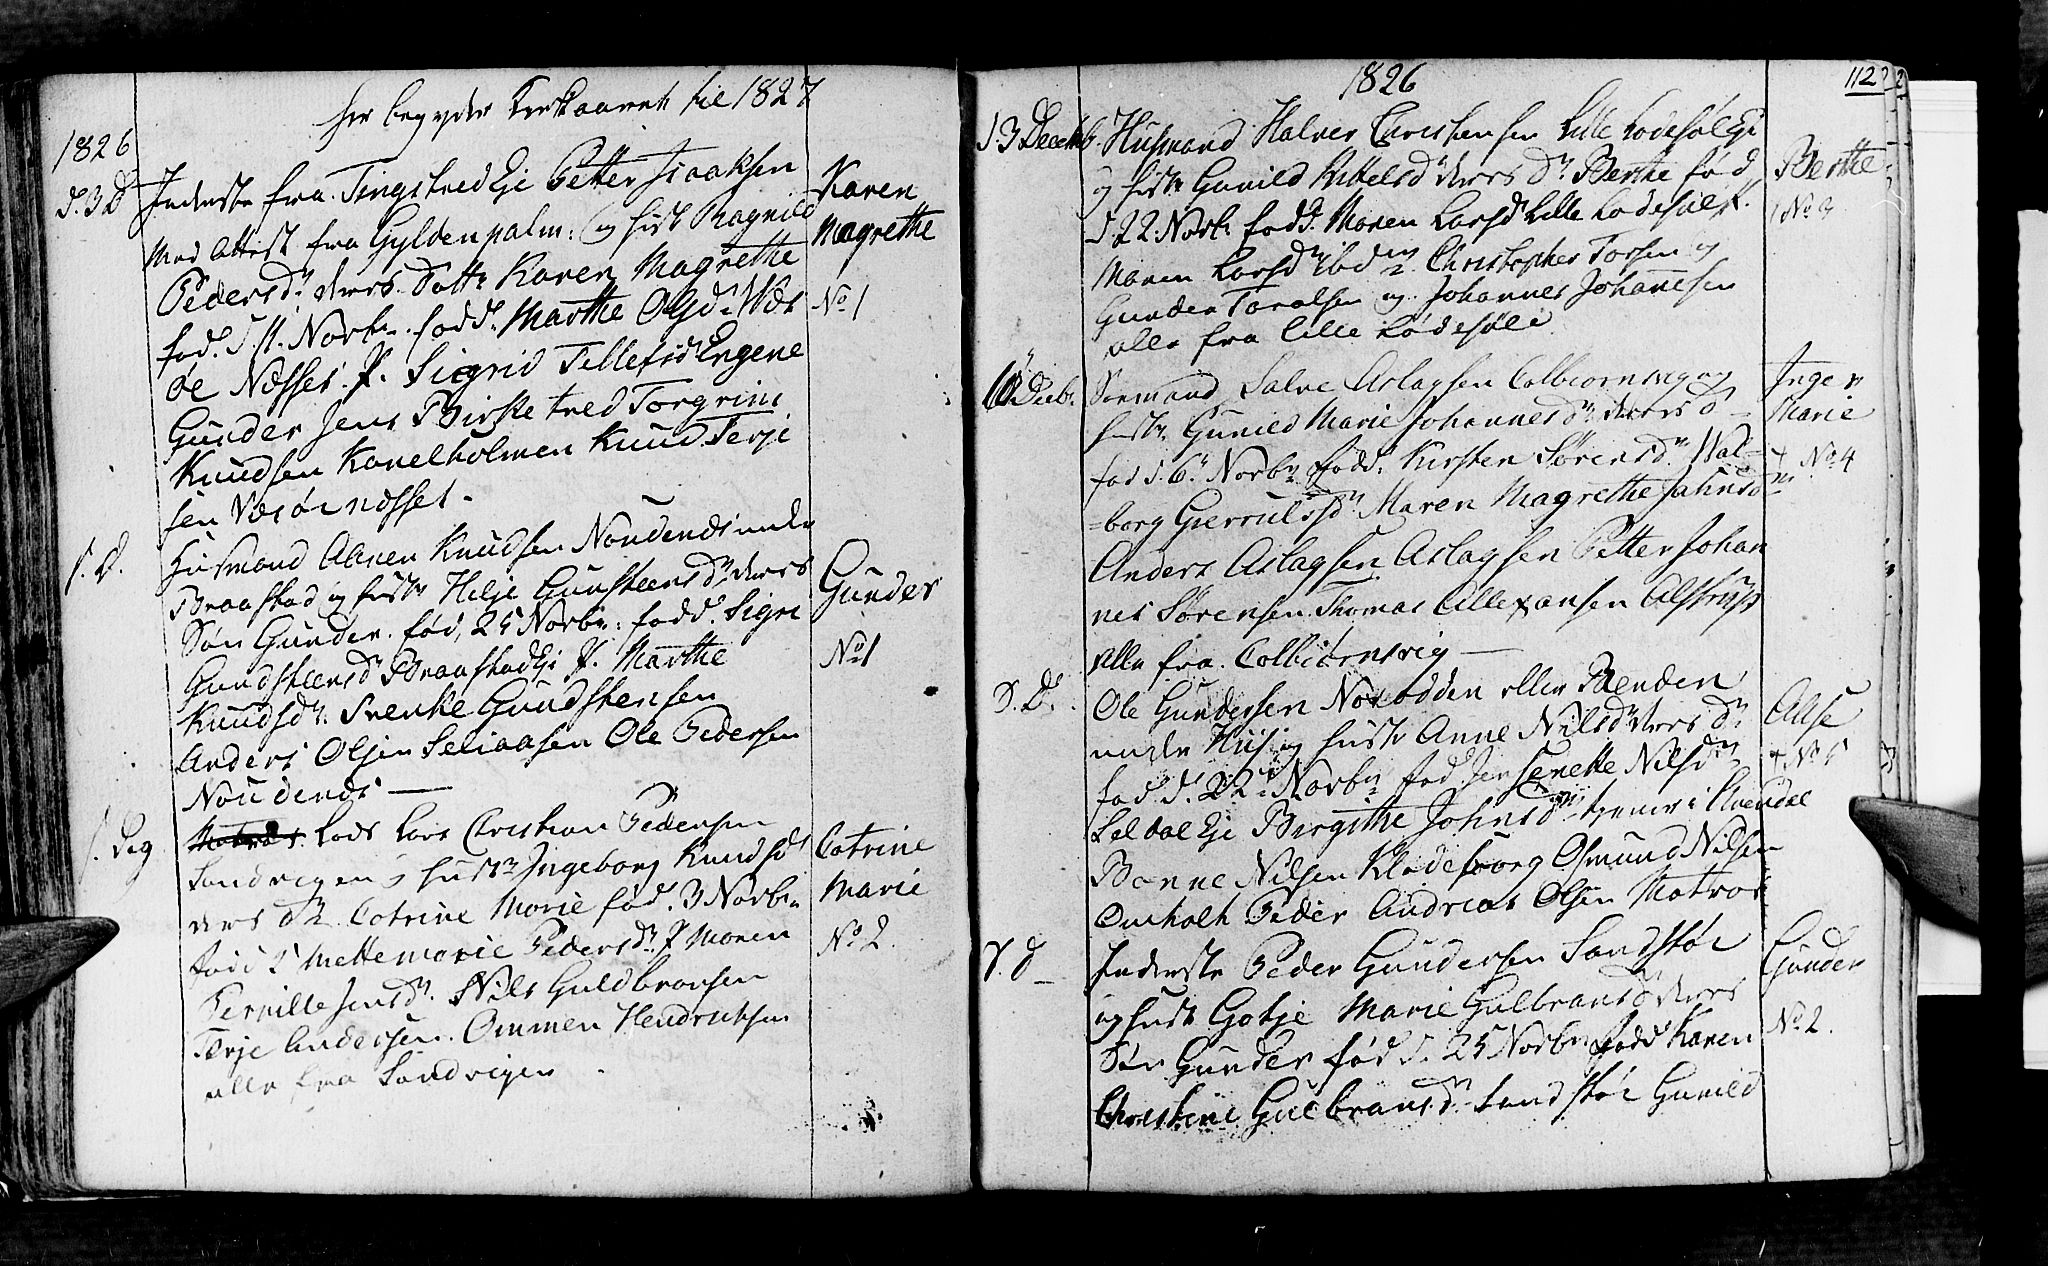 her begynder Kirkeaaret til 1827
1826
d. 3 D
Inderste fra Tingstved Eje Petter Isaaksen
med Attest fra Gyldenpalm: og hust Ragnild
Pedersdr deres Dattr Karen Magrethe
fød. d. 11. Novbr. fadd. Marthe Olsdr Wær
øe Næsset. P. Sigrid Tellefsdr Engene
Gunder Jens Birketved Torgrim
Knudsen Kanelholmen Knud Terje
sen Værøe næsset.
Karen
Magrethe
No 1
s. D.
Husmand Aanen Knudsen Noudenes under
Braastad og hustr Helje Gunsteensdr deres
Søn Gunder. fød, 25 Novbr: fadd. Sigre
Gundsteensdr Braastad Eje P. Marthe
Knudsdr. Svenke Gundstensen
Anders Olsen Seliaasen Ole Pedersen
Noudenes
Gunder
No 1
s. Dag
Lods Lars Christian Pedersen
Sandvigen og hustr Ingeborg Knudsdr
deres dr Catrine Marie fød. 3 Novbr
fadd Mettemarie Pedersdr P Maren
Pernille Jensdr. Nils Guldbransen
Terje Andersen. Ommen Hendriksen
alle fra Sandvigen
Catrine
Marie
No 2.
1826
112
d. 3 Decemb.
Husmand Halver Christensen Lille Lodesøl Eje
og hustr Gunild Kittelsdr deres Dr Berthe fød
d. 22. Novbr fadd. Maren Larsdr Lille Lodesøl P.
Maren Larsdr ibdm Christopher Torsen og
Gunder Toralsen og Johannes Johannesen
alle fra Lille Lødesøle
Berthe
No 3
10 Decb.
Sømand Salve Aslagsen Colbiørnsvig og
hustr Gunild Marie Johannesdr deres d
fød d. 6. Novbr fadd: Kirsten Sørensdr Wal-
=borg Gierrulsdr Maren Magrethe Jahnsdr
Anders Aslagsen Aslagsen Petter Johan
nes Sørensen Thomas Allexansen Alstrup
alle fra Colbiørnsvig
Ingen
Marie
+ No 4
S. D.
Ole Gundersen Noxodden eller Benden
under Hus og hustr Anne Nilsdr deres dr
fød d. 22 Novbr fad Jensenette Nilsdr
Seldal Eje Birgithe Johnsdr tjener i Arendal
Bonne Nilsen Klødeborg Osmund Nilsen
Omholt Peder Andreas Olsen Matros
Aase
+ No 5
S. D
Inderste Peder Gundersen Sandstøe
og hust Gotje Marie Gulbransdr deres
Søn Gunder fød d. 25 Novbr fadd Karen
Christine Gulbransdr Sandstøe Gunild
Gunder
No 2.